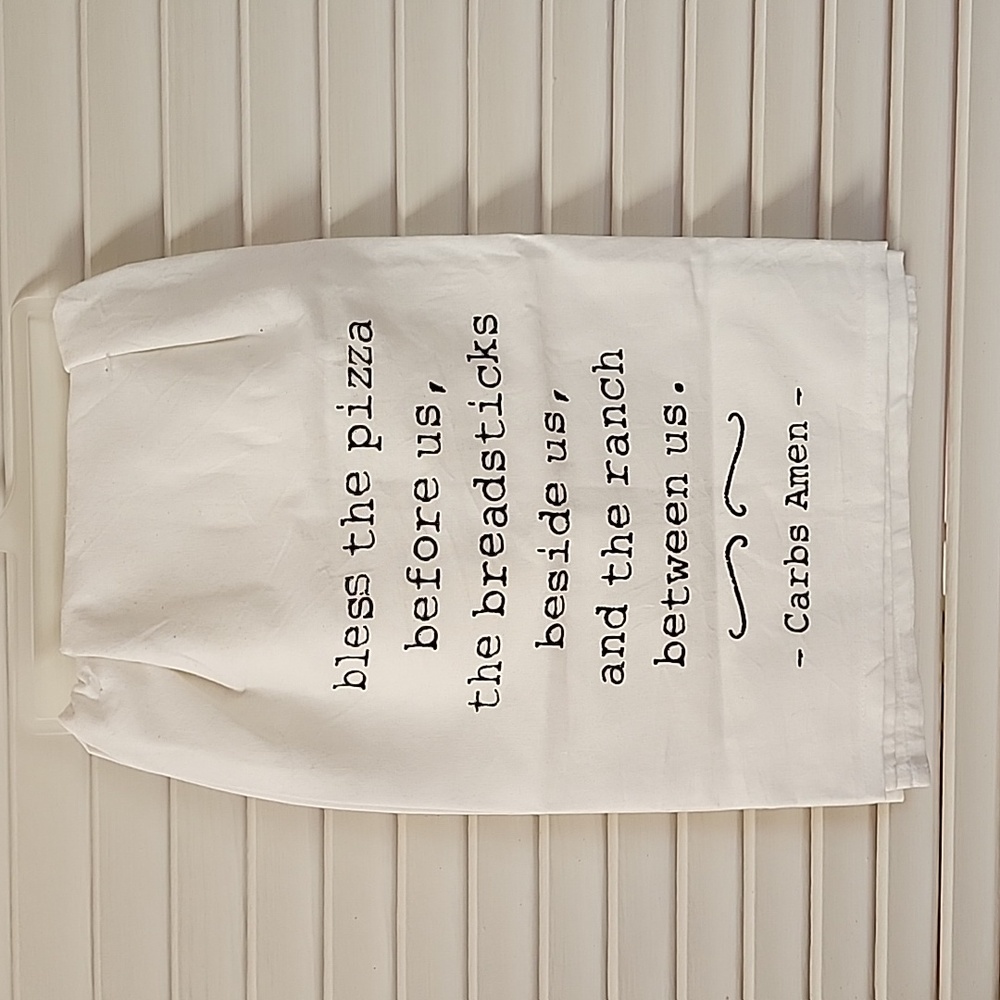 bless the pizza
before us,
the breadsticks
beside us,
and the ranch
between us.
- Carbs Amen -